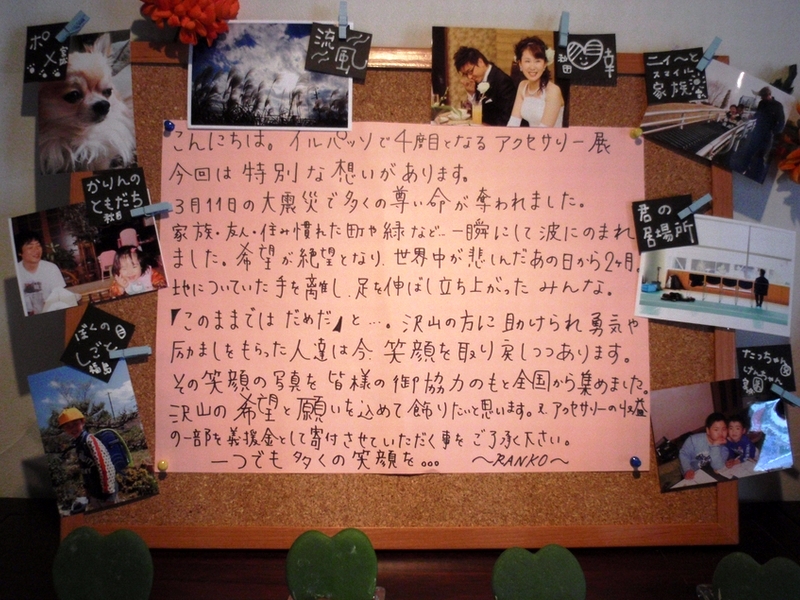 ポメ
宮城
流風
秋田
幸
ニィ〜と
スマイル
家族
こんにちは。イルパッソで4度目となるアクセサリー展
今回は特別な想いがあります。
3月11日の大震災で多くの尊い命が奪われました。
家族・友人・住み慣れた町や緑など…一瞬にして波にのまれ
ました。希望が絶望となり、世界中が悲しんだあの日から2ヶ月。
地についていた手を離し、足を伸ばし立ち上がったみんな。
「このままではだめだ」と…。沢山の方に助けられ勇気や
励ましをもらった人達は今、笑顔を取り戻しつつあります。
その笑顔の写真を皆様の御協力のもと全国から集めました。
沢山の希望と願いを込めて飾りたいと思います。又、アクセサリーの収益
の一部を義援金として寄付させていただく事をご了承下さい。
一つでも多くの笑顔を… 〜RANKO〜
かりんの
ともだち
秋田
君の
居場所
ぼくの
しごと
福島
たっちゃん
けんちゃん